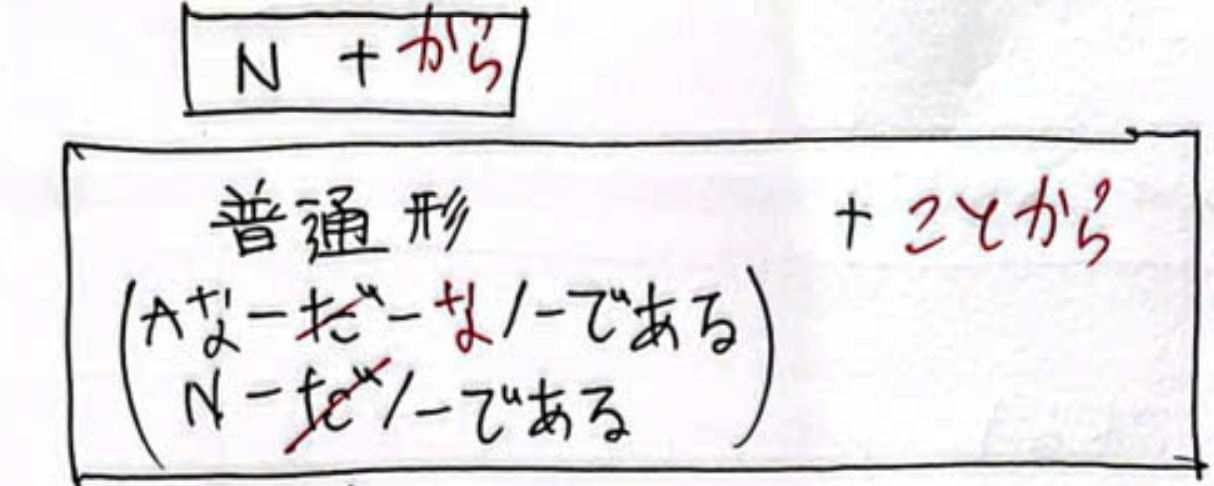 N + から
普通形 + ことから
(Aな-だ-な/-である
N-だ/-である)